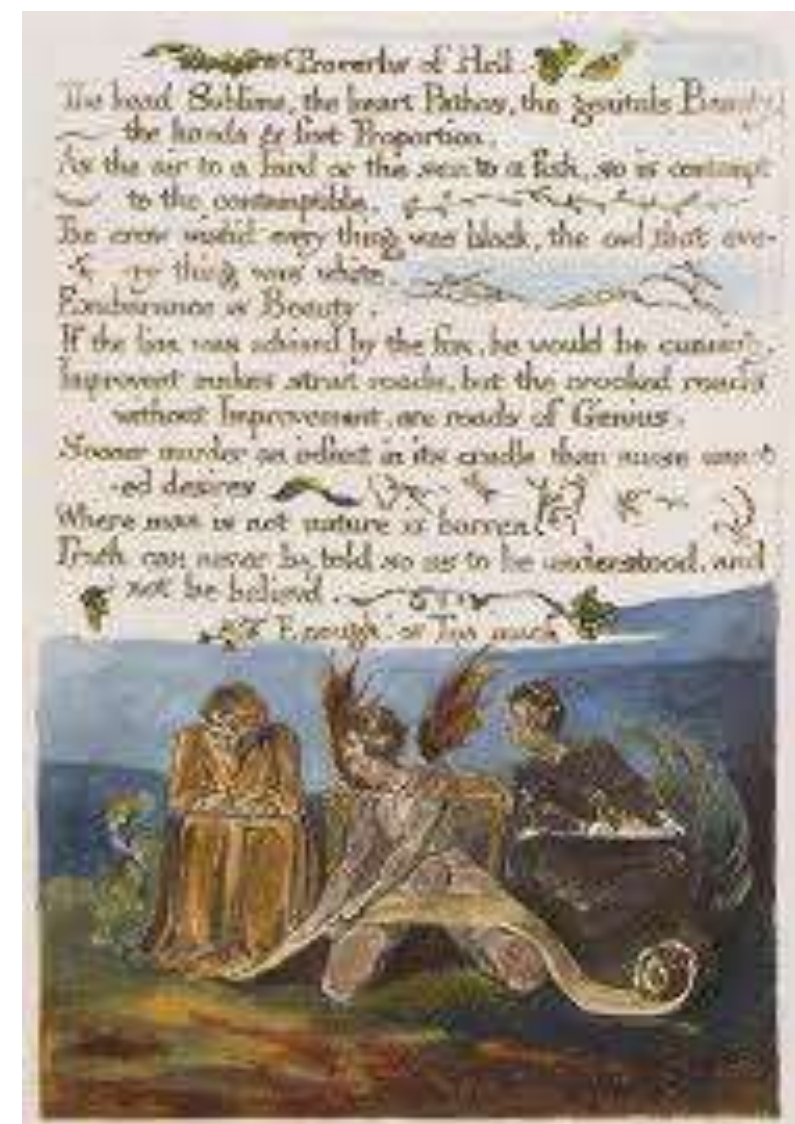 Proverbs of Hell
The head Sublime, the heart Pathos, the genitals Beauty
the hands & feet Proportion.
As the air to a bird or the sea to a fish, so is contempt
to the contemptible.
The crow wish'd every thing was black, the owl, that eve-
-ry thing was white.
Exuberance is Beauty.
If the lion was advised by the fox, he would be cunning.
Improvent makes strait roads, but the crooked roads
without Improvement, are roads of Genius.
Sooner murder an infant in its cradle than nurse unact-
-ed desires
Where man is not nature is barren.
Truth can never be told so as to be understood, and
not be believ'd.
Enough! or Too much